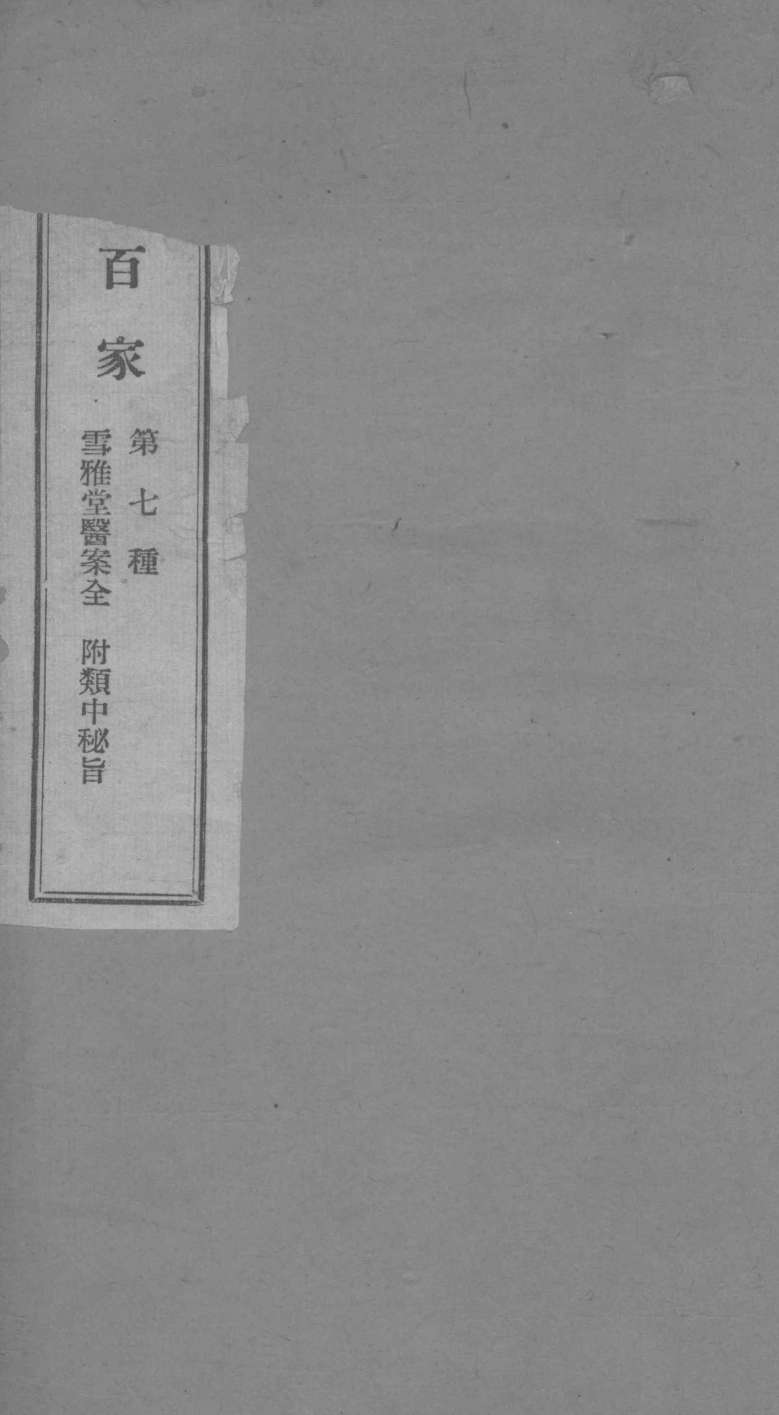 百家
第七種
雪雅堂醫案全　附類中秘旨